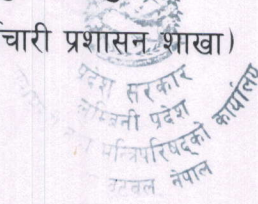 चारी प्रशासन शाखा)
प्रदेश सरकार
लुम्बिनी प्रदेश
मन्त्रिपरिषद्को कार्यालय
बुटवल नेपाल